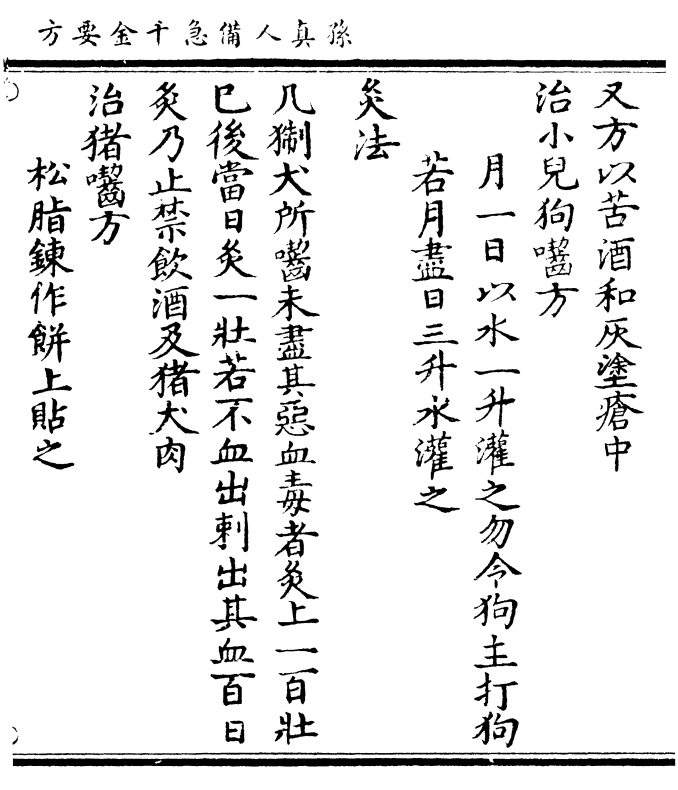 孫真人備急千金要方
又方以苦酒和灰塗瘡中
治小兒狗嚙方
月一日以水一升灌之勿令狗主打狗
若月盡日三升水灌之
灸法
凡猘犬所嚙未盡其惡血毒者灸上一百壯
已後當日灸一壯若不血出刺出其血百日
灸乃止禁飲酒及猪犬肉
治猪嚙方
松脂鍊作餅上貼之